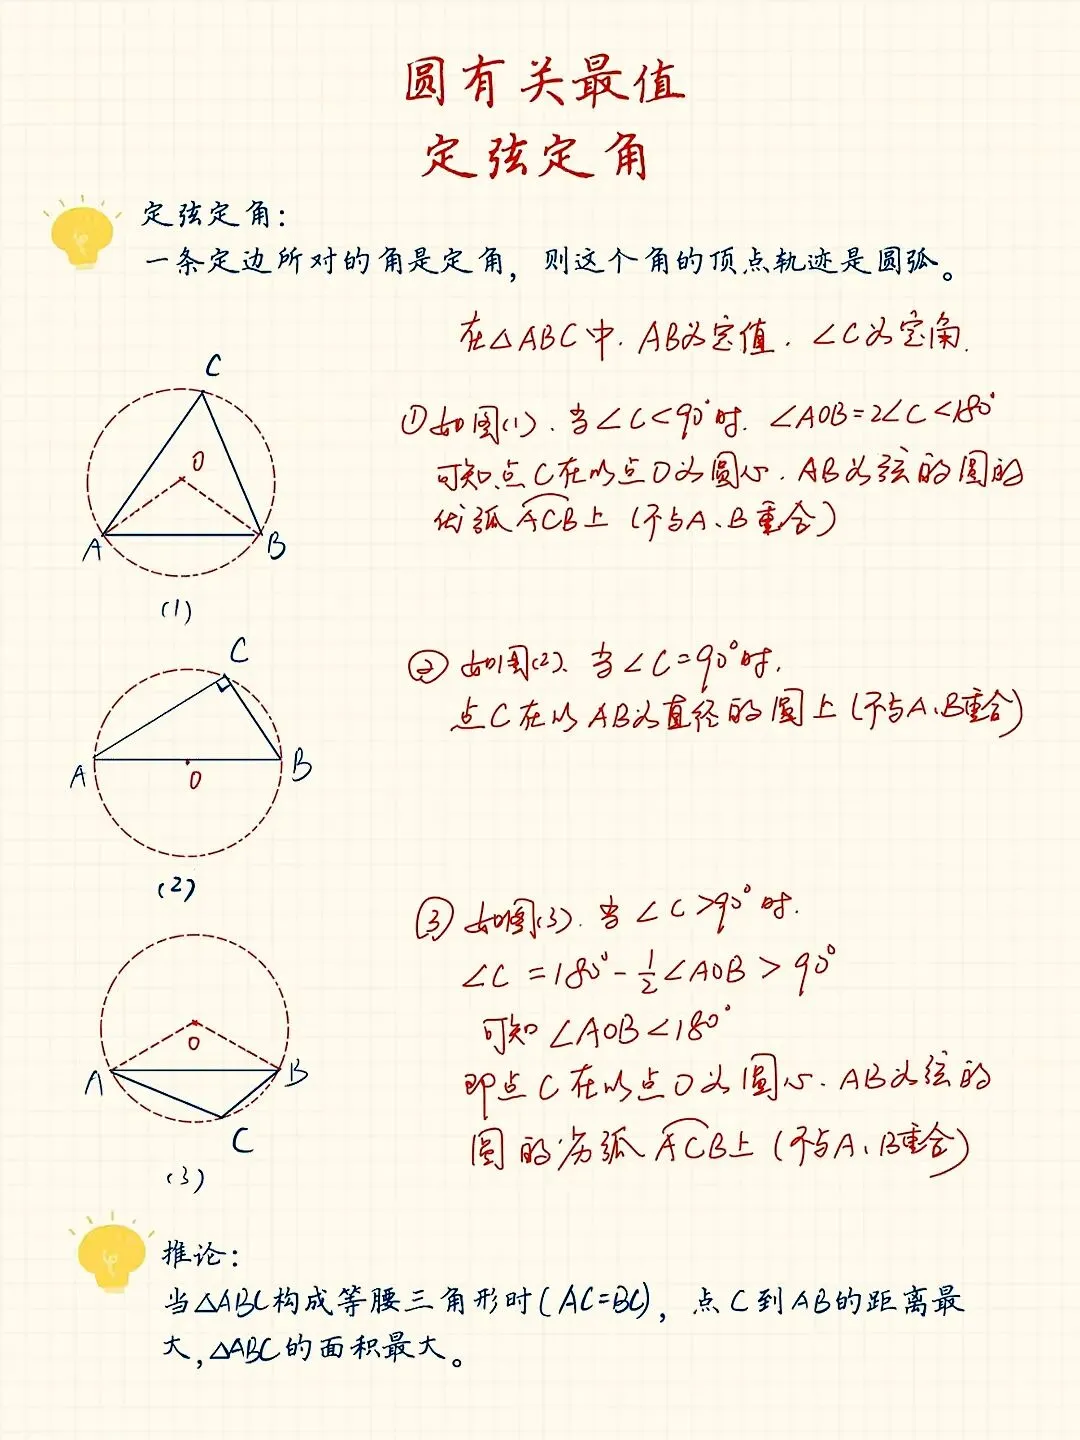 圆有关最值
定弦定角
定弦定角:
一条定边所对的角是定角,则这个角的顶点轨迹是圆弧。
在△ABC中.AB为定值.∠C为定角.
C
O
A
B
(1)
①如图(1).当∠C<90°时.∠AOB=2∠C<180°
可知点C在以点O为圆心.AB为弦的圆的
优弧ACB上(不与A、B重合)
C
A
O
B
(2)
②如图(2).当∠C=90°时.
点C在以AB为直径的圆上(不与A、B重合)
O
A
B
C
(3)
③如图(3).当∠C>90°时.
∠C=180°-½∠AOB>90°
可知∠AOB<180°
即点C在以点O为圆心.AB为弦的
圆的劣弧ACB上(不与A、B重合)
推论:
当△ABC构成等腰三角形时(AC=BC),点C到AB的距离最
大,△ABC的面积最大。